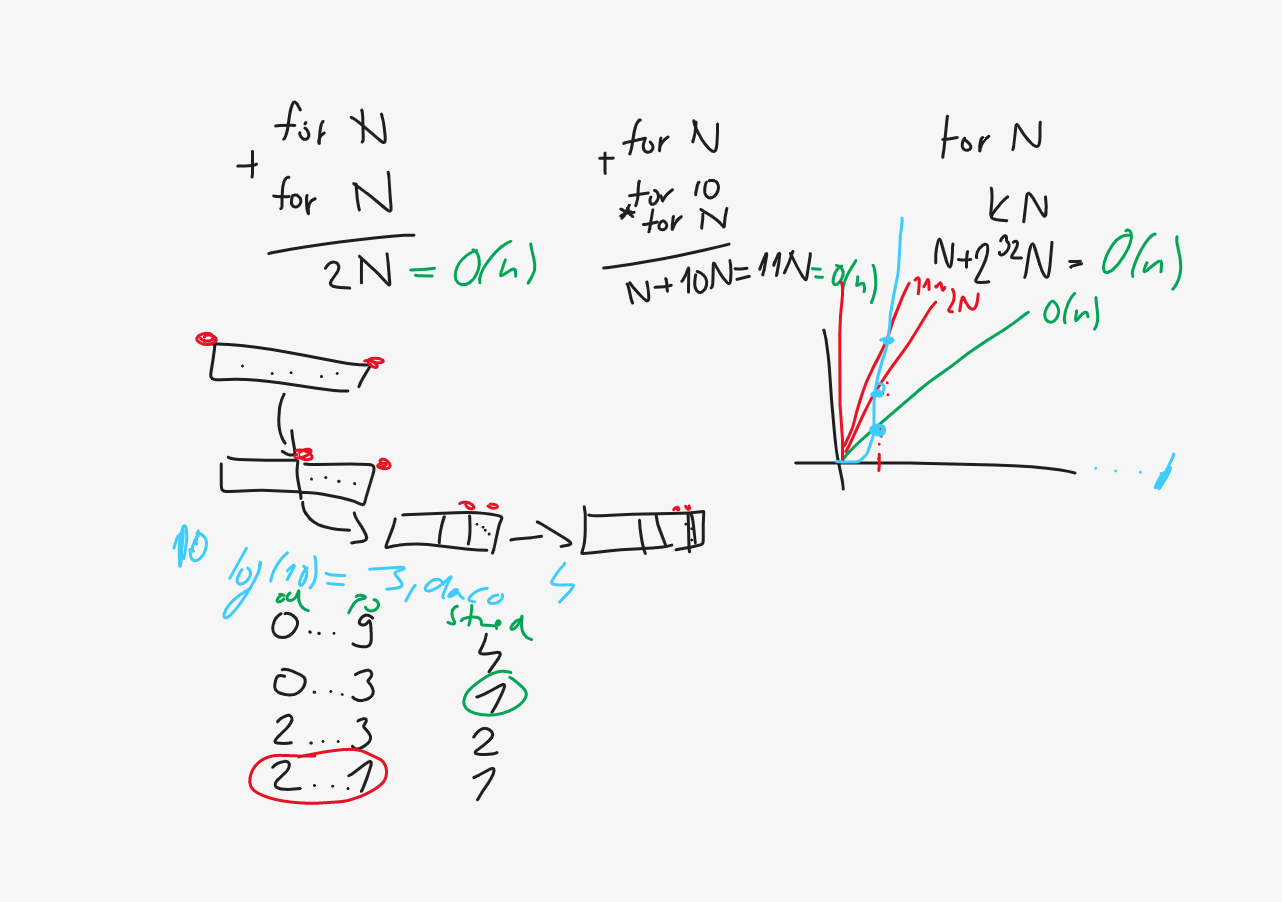 for N
+
for N
2N = O(n)
for N
+
for 10
* for N
N+10N=11N=O(n)
for N
kN
N+2³²N = O(n)
11n
2N
O(n)
10
log(10)= 3,daco 4
od po stred
0...9 4
0...3 1
2...3 2
2...1 1